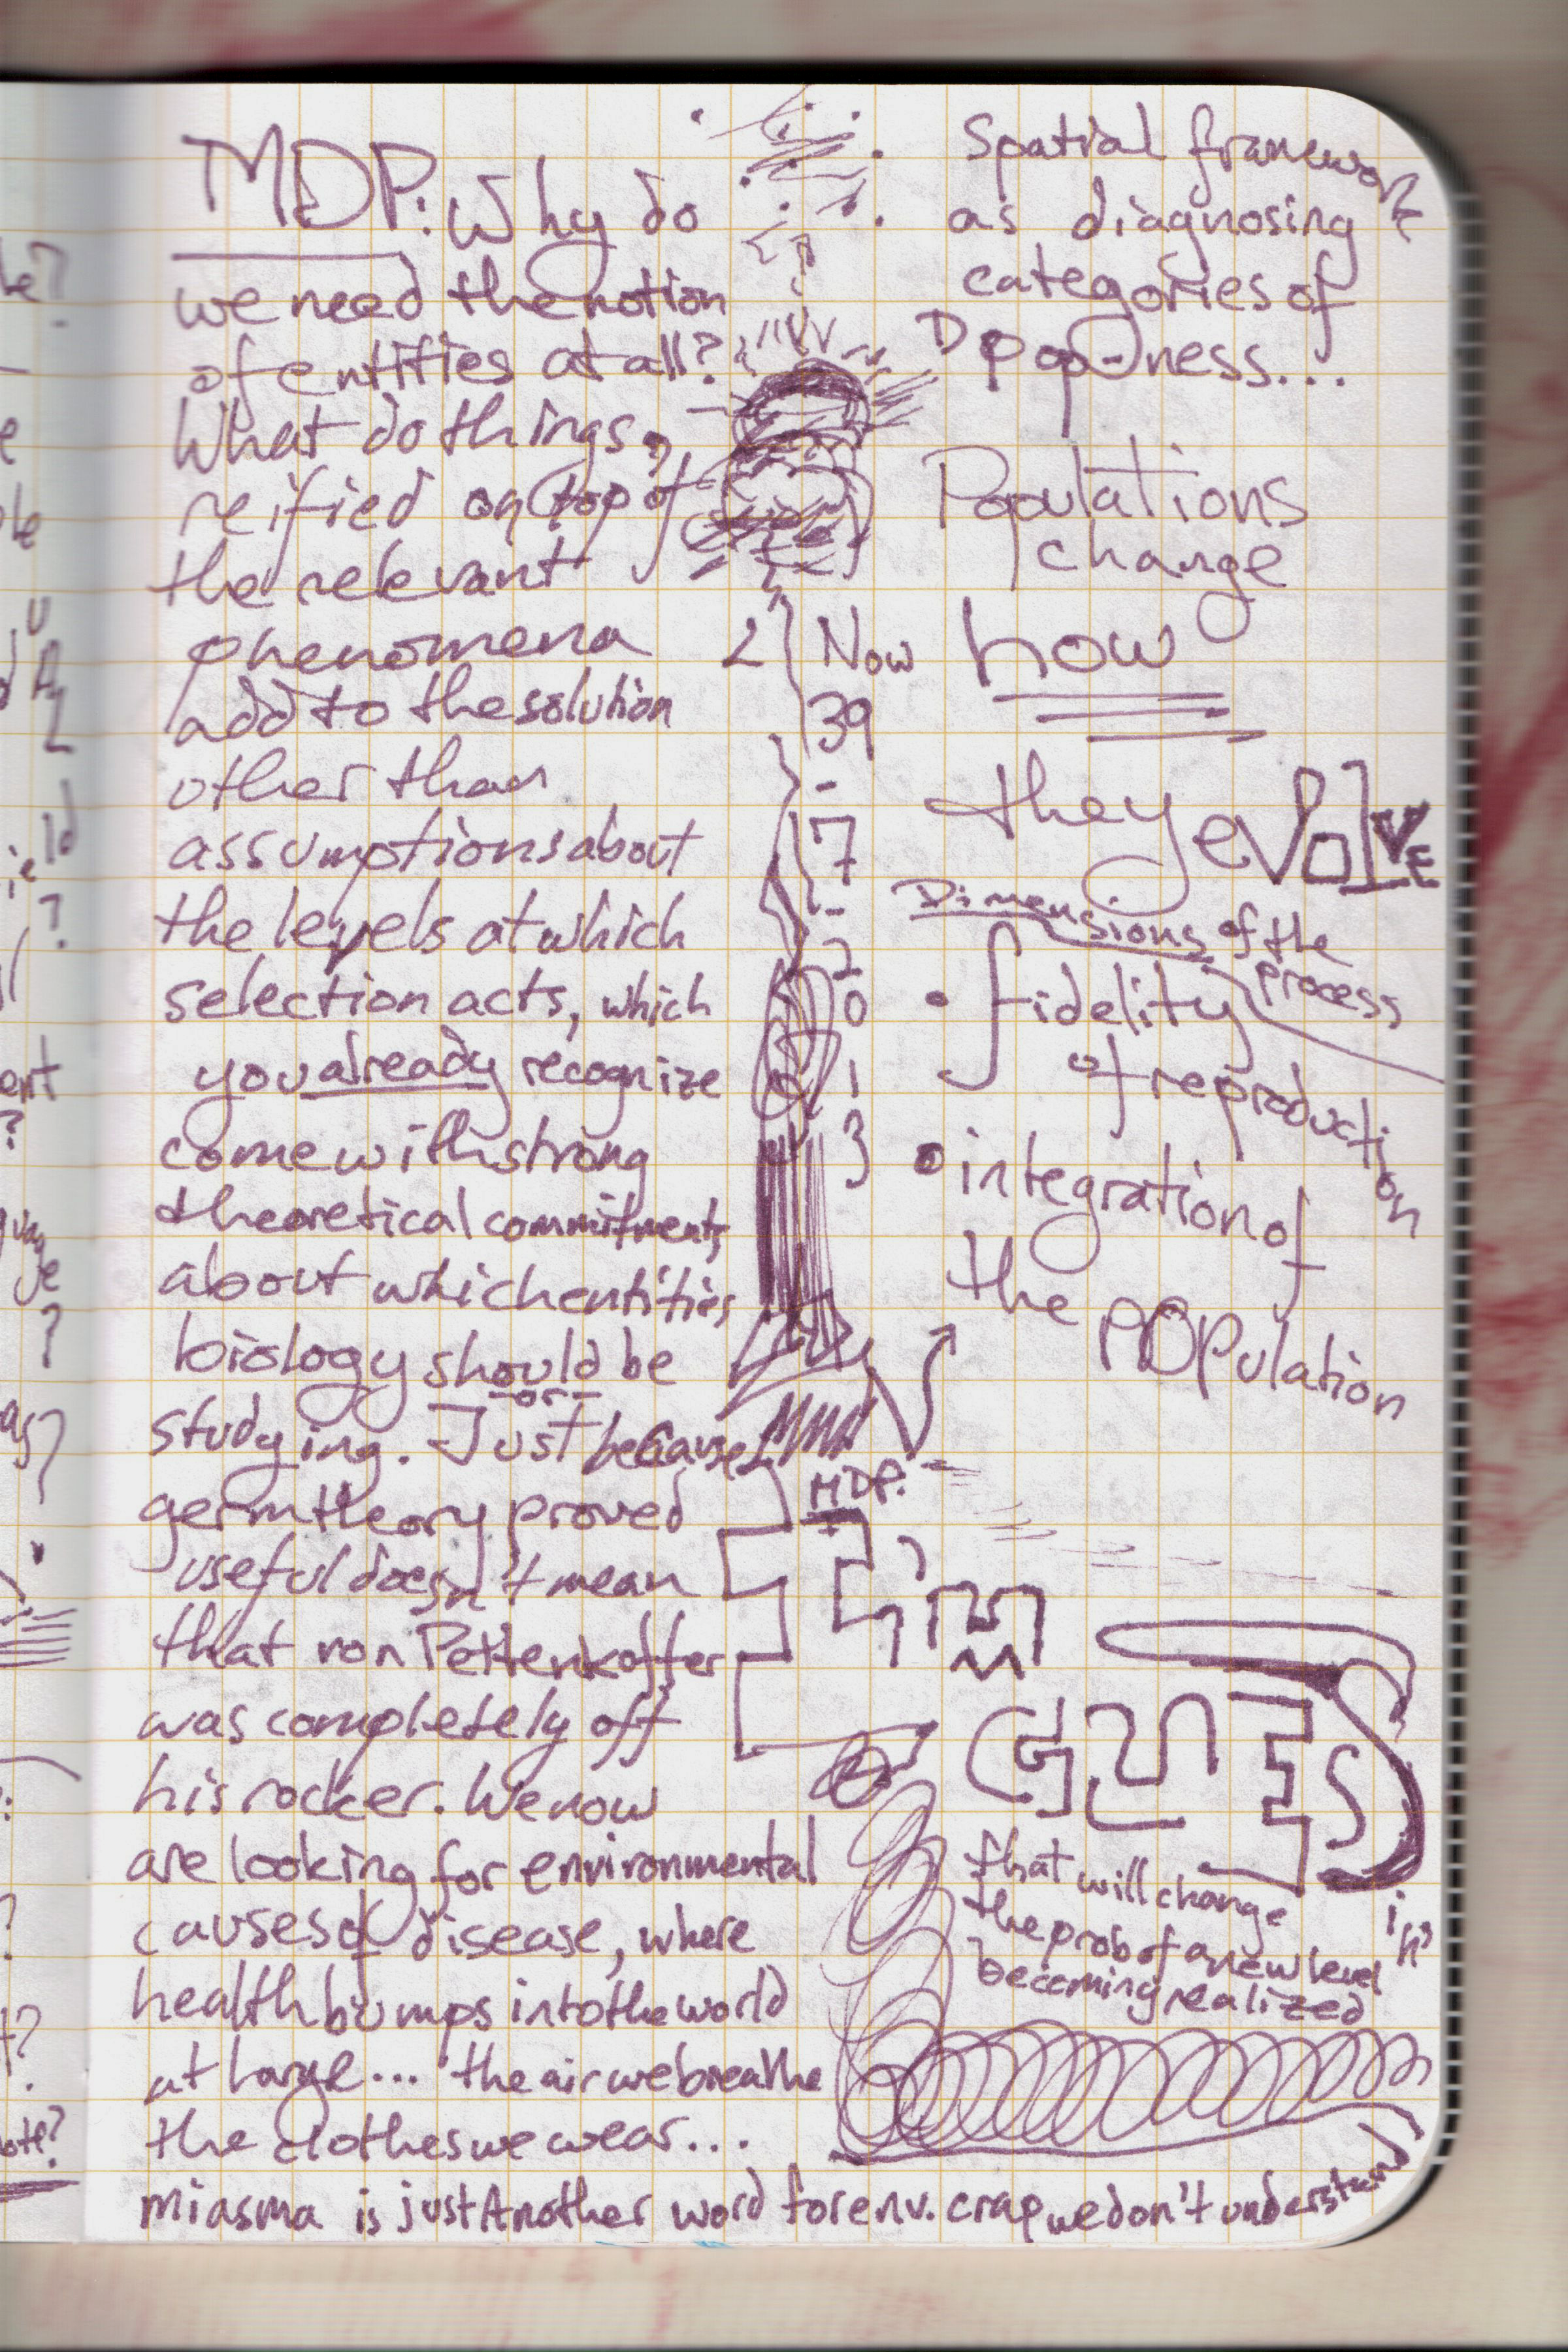 MDP: Why do
we need the notion
of entities at all?
What do things,
reified on top of
the relevant
phenomena
add to the solution
other than
assumptions about
the levels at which
selection acts, which
you already recognize
come with strong
theoretical commitments
about which entities
biology should be
-or-
studying. Just because
germ theory proved
useful doesn't mean
that von Pettenkoffer
was completely off
his rocker. We now
are looking for environmental
causes of disease, where
health bumps into the world
at large... the air we breathe
the clothes we wear...
miasma is just Another word for env. crap we don't understand
Now
39
-
17
-
2
0
1
3
Spatial framework
as diagnosing
categories of
D pop-ness...
Populations
change
how
they evolve
Dimensions of the
process
• fidelity
of reproduction
• integration of
the POPulation
MDP:
I'm
GENES
that will change in?
the prob of a new level
becoming realized